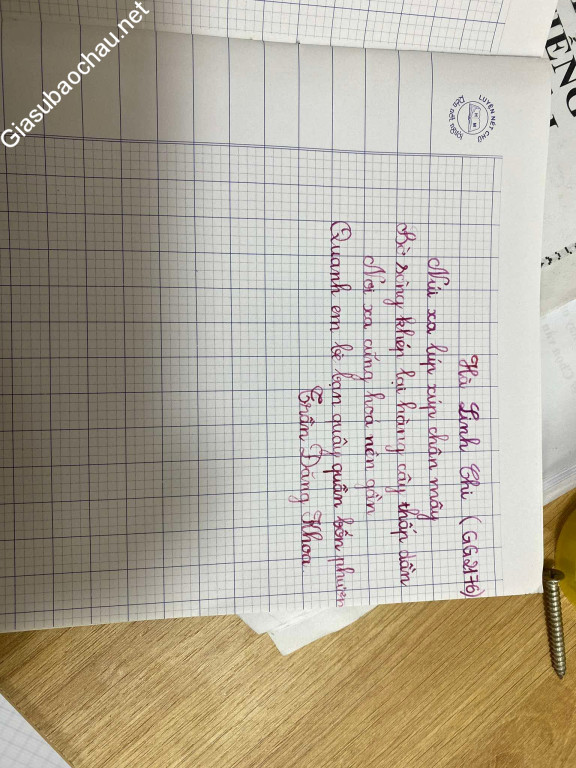 Giasubaochau.net
IẾNG
LUYỆN NÉT CHỮ
RÈN NẾT NGƯỜI
Hà Linh Chi (GG2176)
Núi xa lúp xúp chân mây
Bờ sông khép lại hàng cây thấp dần
Nơi xa cũng hoá nên gần
Quanh em bè bạn quây quần bốn phương
Trần Đăng Khoa